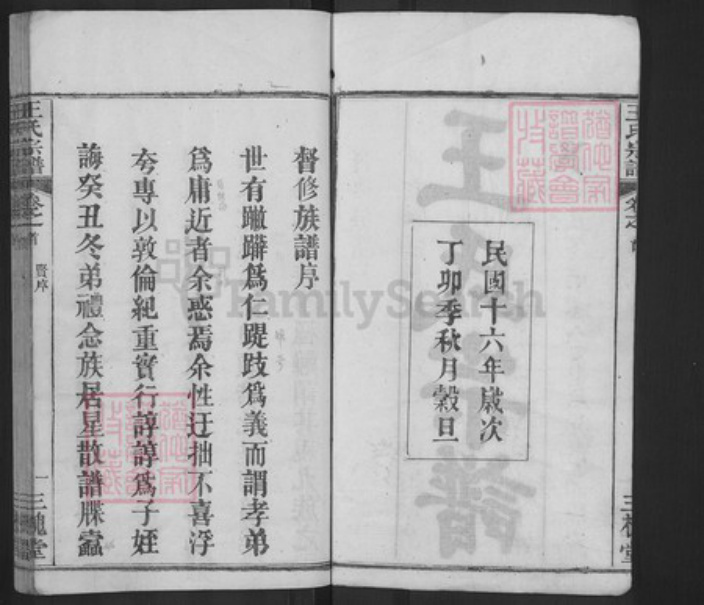 王氏宗譜
民國十六年歲次
丁卯季秋月穀旦
督修族譜序
世有蹩躠為仁踶跂為義而謂孝弟
為庸近者余惑焉余性迂拙不喜浮
夸專以敦倫紀重實行諄諄為子姪
誨癸丑冬弟禮念族居星散譜牒蠹
王氏宗譜
卷之首
賢序
一
三槐堂
FamilySearch